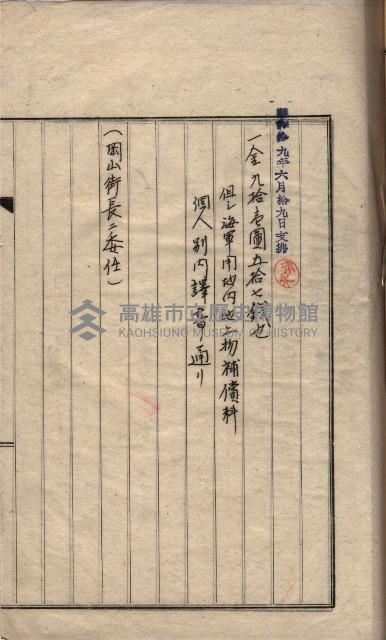 昭和拾九年六月拾九日支拂
一金九拾壱圓五拾七錢也
但シ海軍用地内地上物補償料
個人別内譯書ノ通リ
(岡山街長ニ委任)
高雄市立歷史博物館
KAOHSIUNG MUSEUM OF HISTORY